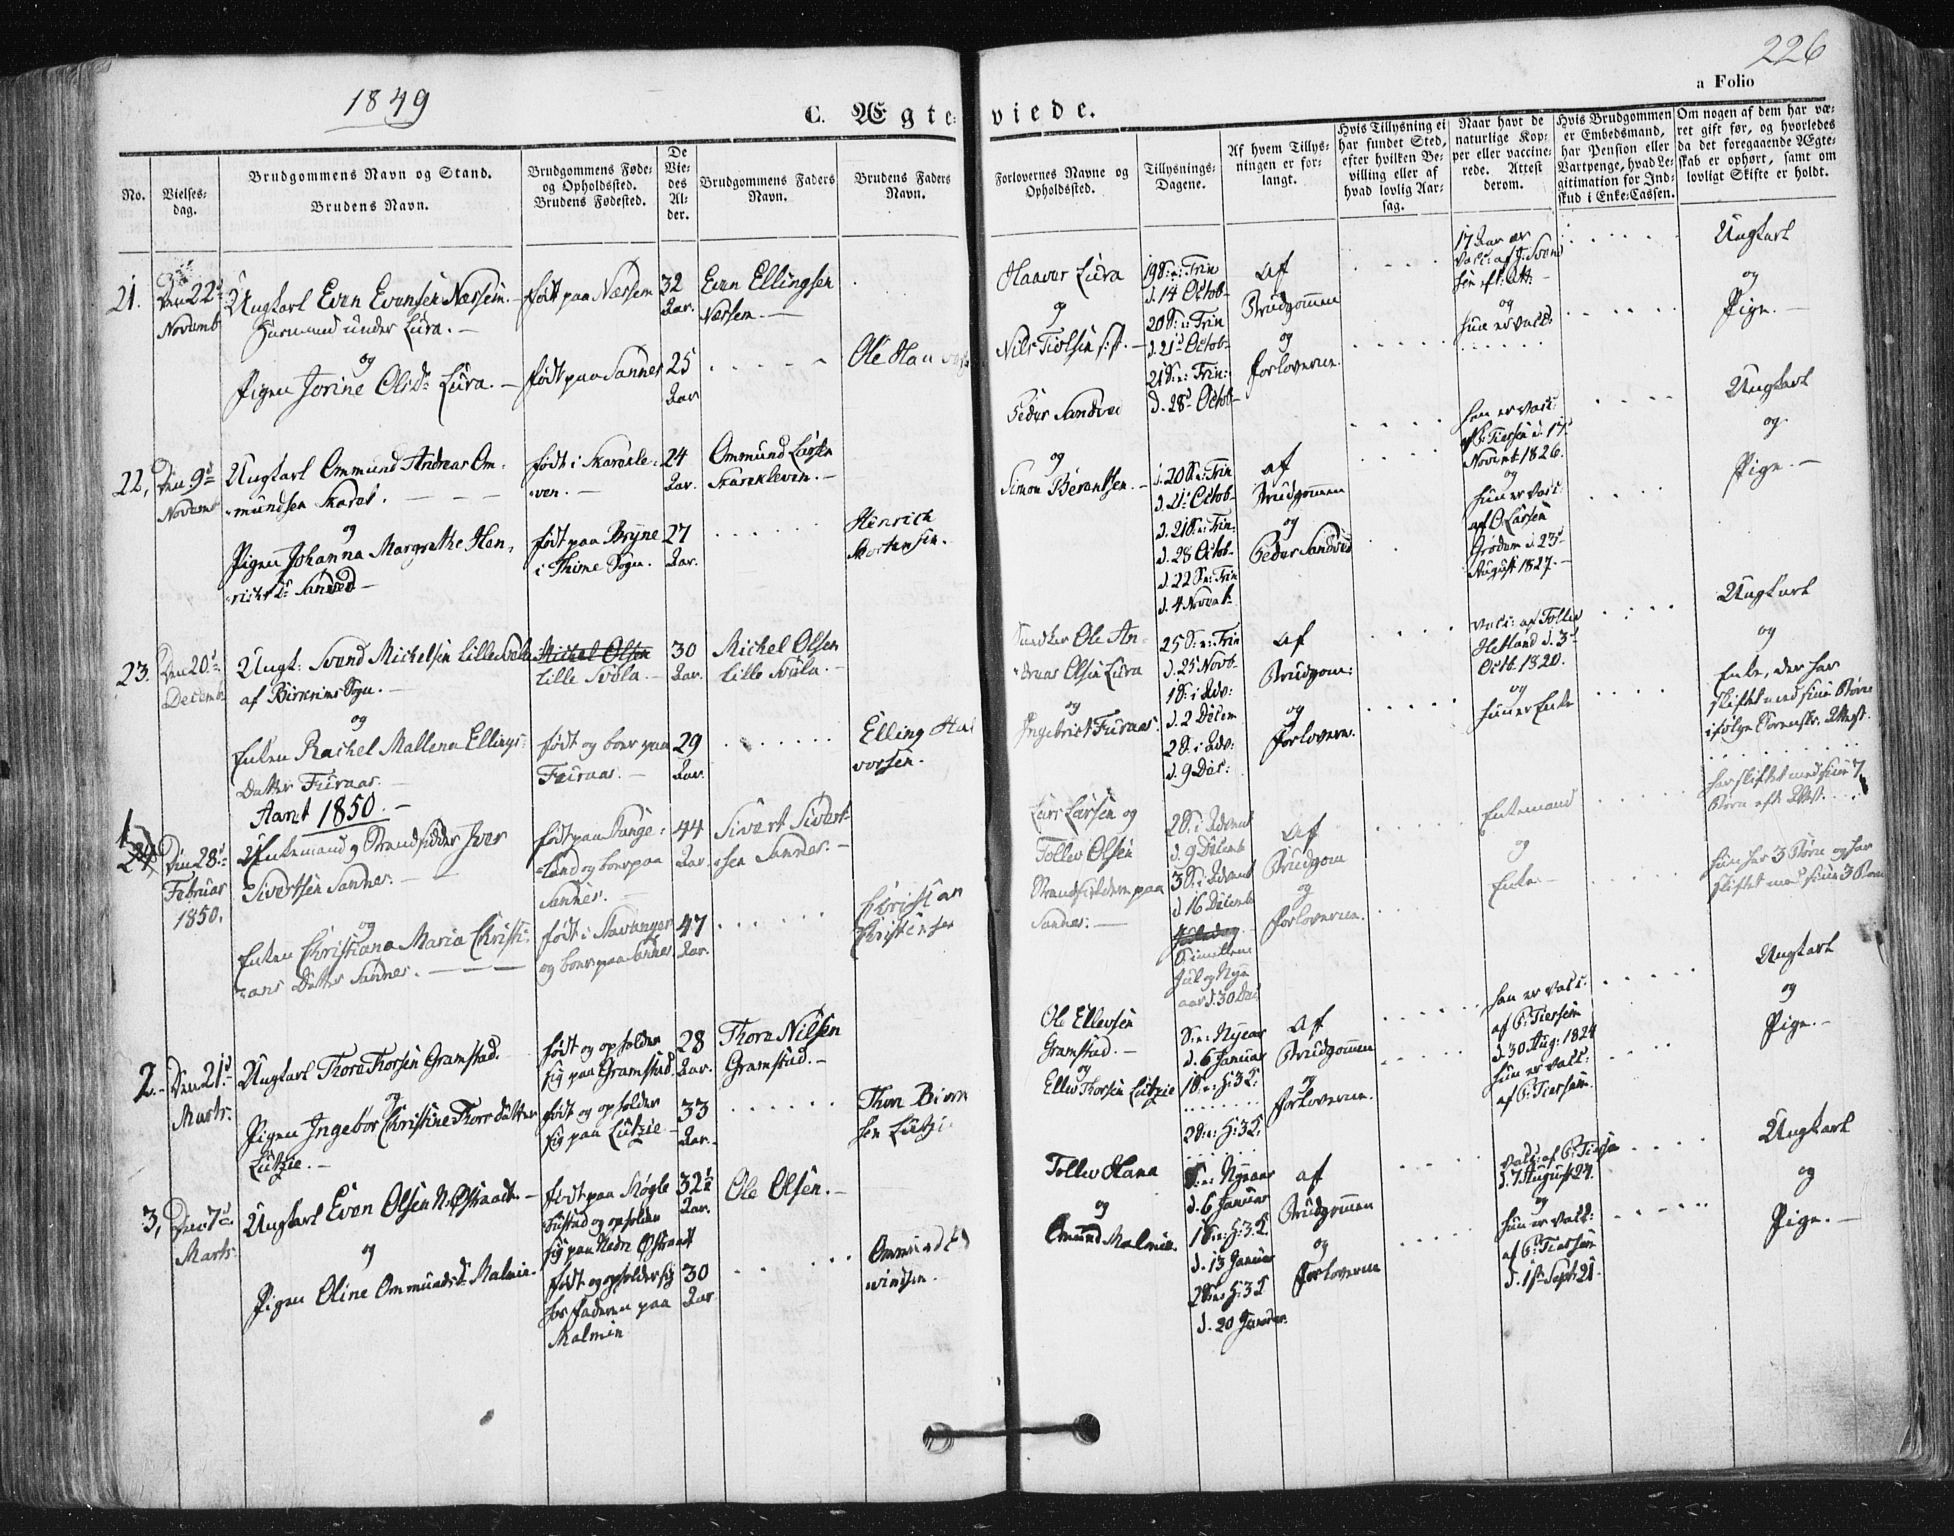 1849
226
a Folio
C. Ægte-
viede.
No.
Vielses-
dag.
Brudgommens Navn og Stand.
Brudens Navn.
Brudgommens Føde-
og Opholdssted.
Brudens Fødested.
De
Vie-
des
Al-
der.
Brudgommens Faders
Navn.
Brudens Faders
Navn.
Forlovernes Navne og
Opholdssted.
Tillysnings-
Dagene.
Af hvem Tillys-
ningen er for-
langt.
Hvis Tillysning ei
har fundet Sted,
efter hvilken Be-
villing eller af
hvad lovlig Aar-
sag.
Naar havt de
naturlige Kop-
per eller vaccine-
rede. Attest
derom.
Hvis Brudgommen
er Embedsmand,
har Pension eller
Vartpenge, hvad Le-
gitimation for Ind-
skud i Enke-Cassen.
Om nogen af dem har væ-
ret gift før, og hvorledes
da det foregaaende Ægte-
skab er ophørt, samt om
lovligt Skifte er holdt.
21.
Den 22d
Novemb
Ungkarl Even Evensen Næssem
Huusmand under Lura.
og
Pigen Jorine Olsd: Lura.
født paa Næssem
født paa Sannes
32
Aar.
25
Aar
Even Ellingsen
Næssem.
Ole Han
Haaver Lura
og
Nils
19 S: e: Trin
d. 14 Octob
20 S: e: Trin
d. 21d Octob
21 S: e: Trin:
d. 28d Octob
af
Brudgommen
og
forloverne.
17 Aar
og
hun er vacc:
Ungkarl
og
Pige.
22,
Den 9de
Novemb
Ungkarl Ommund Andreas Om-
mundsen Skaret.
og
Pigen Johanna Margrethe Hen-
richsdr Sandved
født i Skarekle-
ven.
født paa Bryne
i Thime Sogn.
24
Aar.
27
Aar.
Ommund Larsen
Skarekleven.
Hinrich
Mortensen.
Peder Sandved
og
Simon Berentsen.
d. 20 S: e: Trin
d. 21 Octob
d. 21 S: e: Trin:
d. 28 Octob
d. 22 S: e: Trin
d. 4 Novemb
af
Brudgommen
og
Peder Sandved
han er vacc:
af P: Tiersen d. 17
Novemb 1826.
og
hun er vacc:
af O. Larsen
Grødem d. 23d
August 1827.
Ungkarl
og
Pige.
23.
Den 20d
Decemb
Ungk: Svend Michelsen Lille Svela
af Bierkrims Sogn.
og
Enken Rachel Mallena Ellings-
datter Furaas.
Michel Olsen
Lille Svela.
født og boer paa
Furaas.
30
Aar.
29
Aar.
Michel Olsen
Lille Svela.
Elling Hal
vorsen.
Ole An-
dreas Olsen Lura
og
Ingebrict Furaas.
25 S: e: Trin
d. 25 Novb.
1 S: i Adv:
d. 2 Decem
2 S: i Adv:
d. 9 Dec:
af
Brudgom:
og
forlovern.
vacc: af Tollev
Hetland d. 3d
Octb. 1820.
og
hun er Enke
Ungkarl
og
Enke, der har
skiftet med sine Børn
ifølge Sorenskr. Attest.
Aaret 1850.
1
24
Den 28d
Februar
1850.
Enkemand og Strandsidder Iver
Sivertsen Sannes.
og
Enken Christiana Maria Christi-
ans Datter Sannes.
født paa Tange-
land og boer paa
Sannes.
født i Stavanger
og boer paa Sannes
44
Aar.
47
Aar.
Sivert Sivert-
sen Sannes.
Christian
Christensen
Lars Larsen og
Tollev Olsen
Strandsiddere paa
Sannes.
2 S: i Advent
d. 9 Decemb
3 S: i Advent
d. 16 Decemb
S: imellem
Jul og Nye
aar d. 30 Dec
af
Brudgom
og
forloverne.
Enkemand
og
Enke
har skiftet med sine 7
Børn efter Attest.
hun har 3 Børn og har
skiftet med sine 3 Børn
2.
Den 21d
Marts.
Ungkarl Thore Thorsen Gramstad.
og
Pigen Ingebor Christine Thors Datter
Lutzie.
født og opholder
sig paa Gramstad.
født og opholder
sig paa Lutzie
28
Aar.
33
Aar.
Thore Nilsen
Gramstad.
Thore Biørn
sen Lutzi
Ole Ellevsen
Gramstad.
og
Ellev Thorsen Lutzie
S: e: Nyeaar
d. 6 Januar
1 S: e: H: 3 K:
2 S: e: H: 3 K:
af
Brudgommen
og
forloverne.
han er vacc:
af P: Tiersen
d. 30 Aug: 1824
hun er vacc:
af P: Tiersen.
Ungkarl
og
Pige.
3,
Den 7d
Marts.
Ungkarl Even Olsen N: Østraadt.
og
Pigen Oline Ommundsd: Malmin.
født paa Møgle-
bustad og opholder
sig paa Nedre Østraadt
født og opholder sig
hos Faderen paa
Malmin
32½
Aar.
30
Aar
Ole Olsen.
Ommund Ed
windsen.
Tollev Hana
og
Omund Malmin.
S: e: Nyeaar
d. 6 Januar
1 S: e: H: 3 K.
d. 13 Januar
2 S: e: H: 3 K
d. 20 Januar.
af
Brudgommen
og
forloverne
vacc: af P: Tiersen
d. 7 August 24.
og
hun er vacc:
af P: Tiersen
d. 1ste Sept: 21.
Ungkarl
og
Pige.